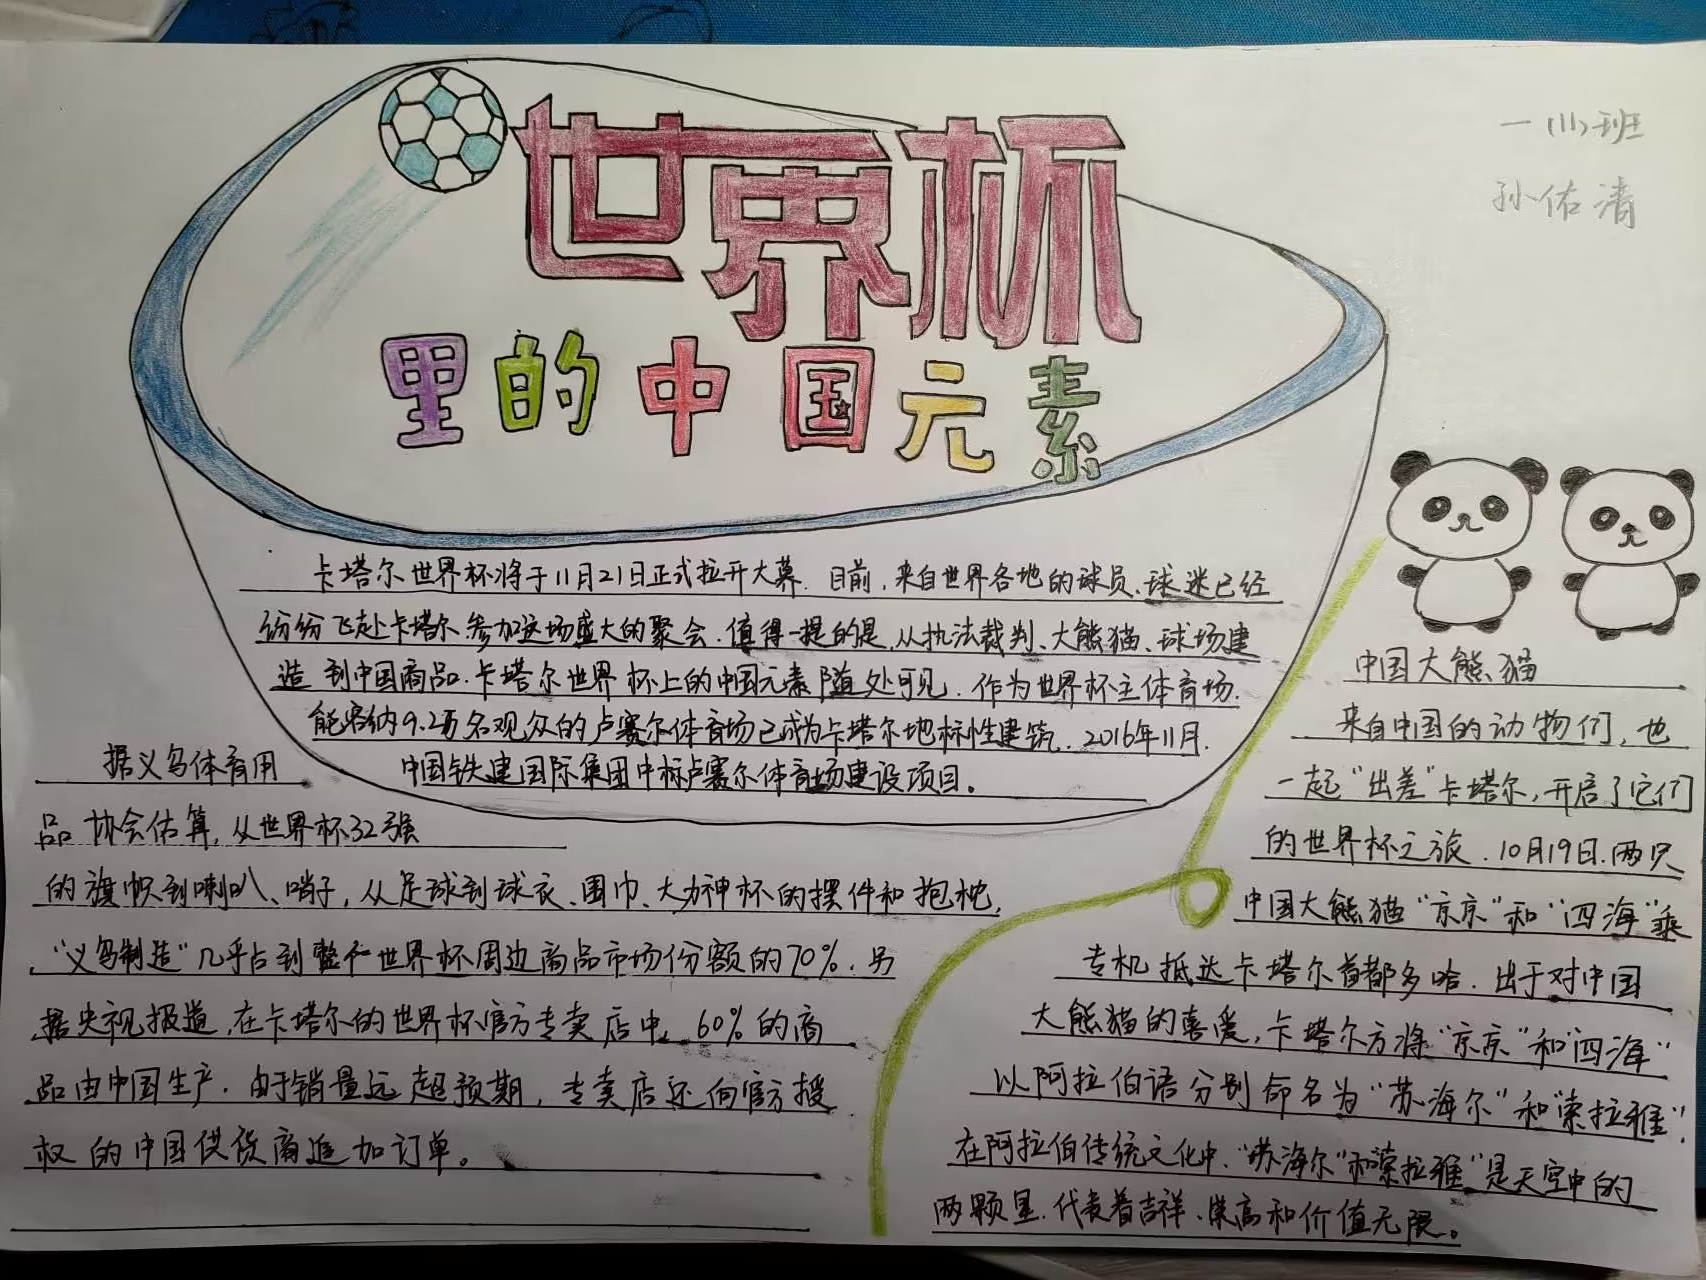 一(11)班
孙佑清
世界杯
里的中国元素
卡塔尔世界杯将于11月21日正式拉开大幕.目前,来自世界各地的球员、球迷已经
纷纷飞赴卡塔尔参加这场盛大的聚会.值得一提的是,从执法裁判、大熊猫、球场建
造到中国商品.卡塔尔世界杯上的中国元素随处可见.作为世界杯主体育场.
能容纳9.2万名观众的卢赛尔体育场已成为卡塔尔地标性建筑.2016年11月.
中国铁建国际集团中标卢赛尔体育场建设项目。
据义乌体育用
品协会估算,从世界杯32强
的旗帜到喇叭、哨子,从足球到球衣、围巾、大力神杯的摆件和抱枕,
“义乌制造”几乎占到整个世界杯周边商品市场份额的70%.另
据央视报道,在卡塔尔的世界杯官方专卖店中,60%的商
品由中国生产.由于销量远超预期,专卖店还向官方授
权的中国供货商追加订单。
中国大熊猫
来自中国的动物们,也
一起“出差”卡塔尔,开启了它们
的世界杯之旅.10月19日.两只
中国大熊猫“京京”和“四海”乘
专机抵达卡塔尔首都多哈.出于对中国
大熊猫的喜爱,卡塔尔方将“京京”和“四海”
以阿拉伯语分别命名为“苏海尔”和“索拉雅”.
在阿拉伯传统文化中,“苏海尔”和“索拉雅”是天空中的
两颗星.代表着吉祥、崇高和价值无限。